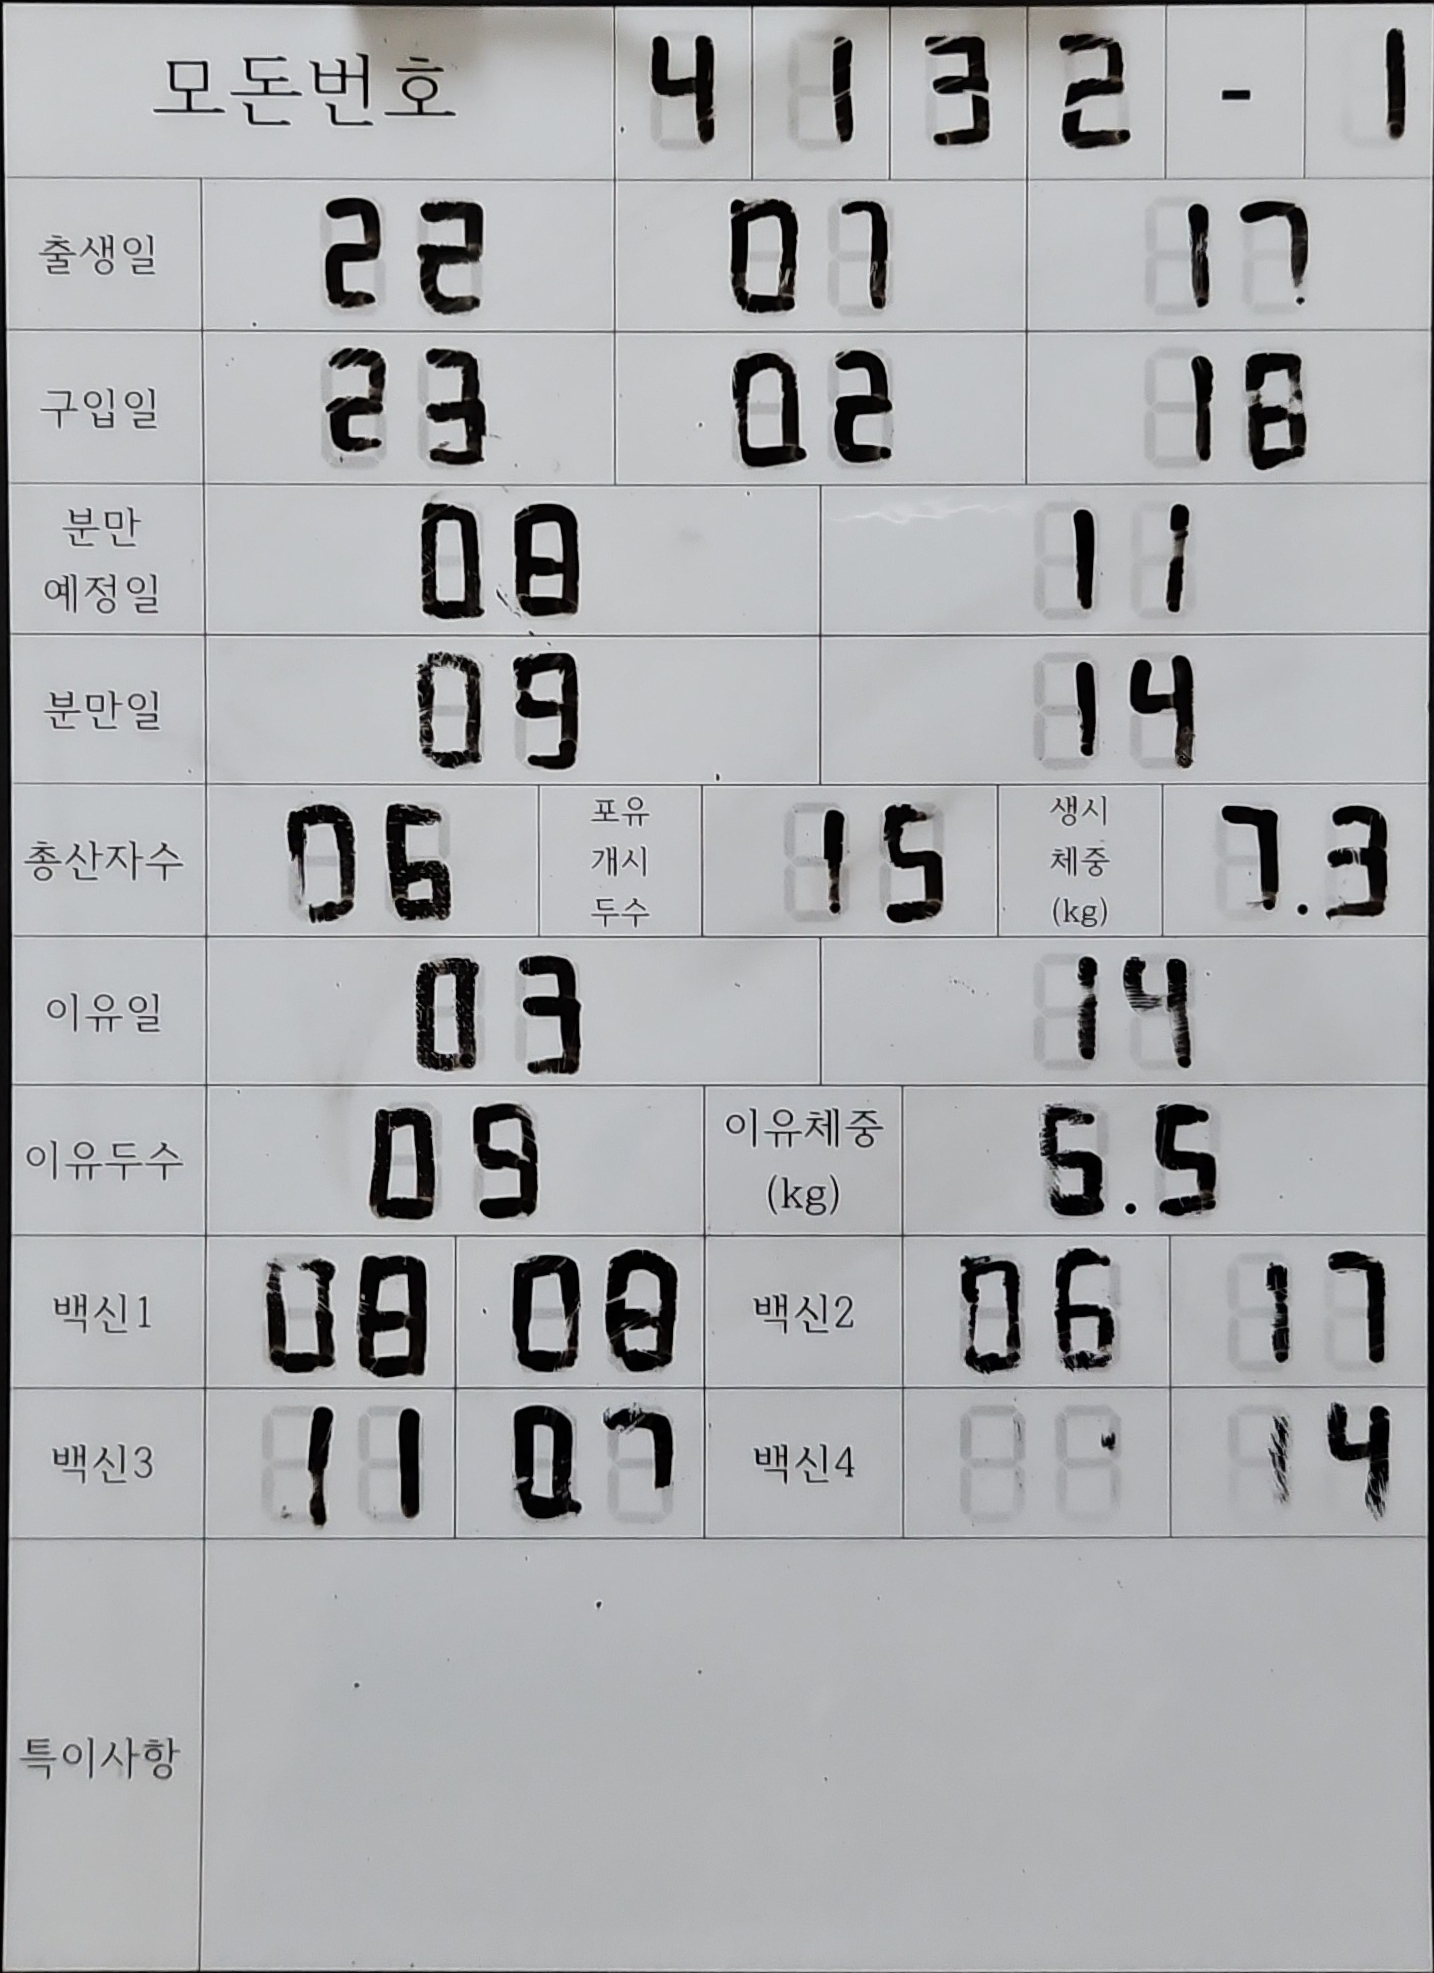 모돈번호 4 1 3 2 - 1
출생일 22 07 17
구입일 23 02 18
분만 예정일 08 11
분만일 09 14
총산자수 06 포유 개시 두수 15 생시 체중 (kg) 7.3
이유일 03 14
이유두수 09 이유체중 (kg) 6.5
백신1 08 08 백신2 06 17
백신3 11 07 백신4 14
특이사항